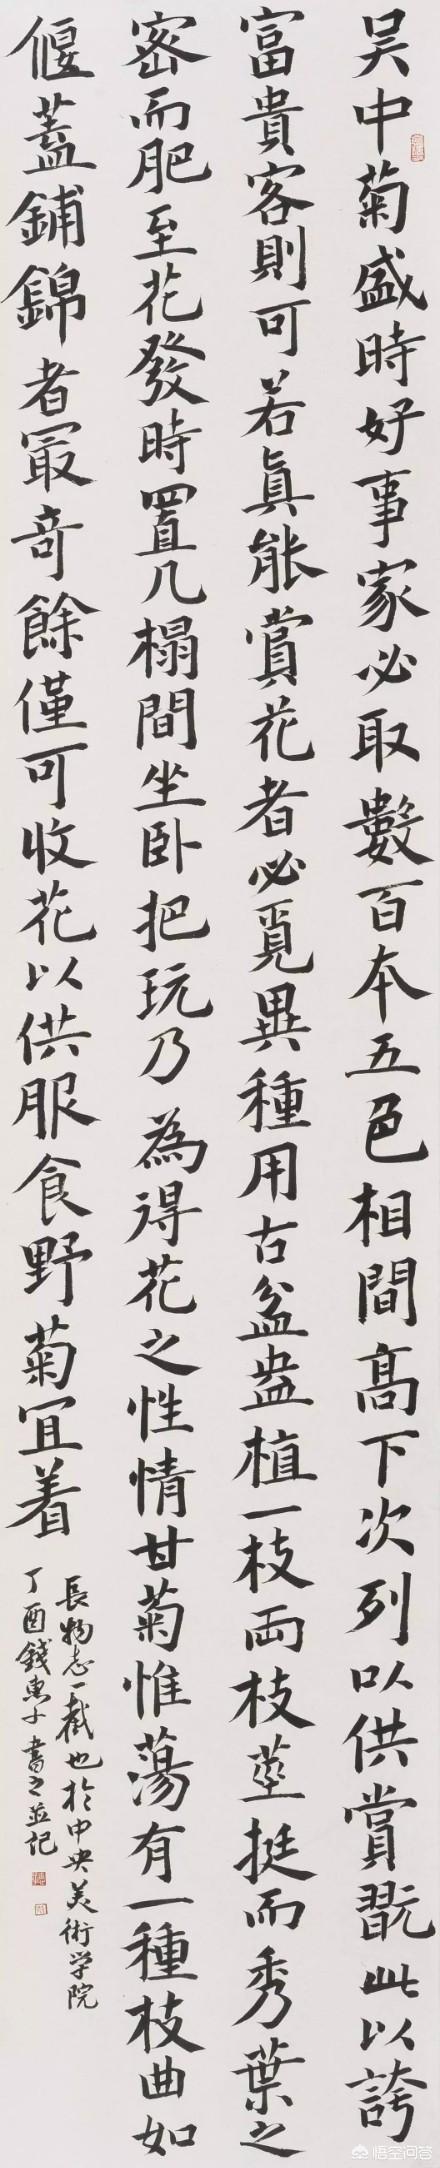 吴中菊盛時好事家必取數百本五色相間高下次列以供賞翫此以誇
富貴客則可若真能賞花者必覓異種用古盆盎植一枝兩枝莖挺而秀葉之
密而肥至花發時置几榻間坐卧把玩乃為得花之性情甘菊惟蕩有一種枝曲如
偃蓋鋪錦者最奇餘僅可收花以供服食野菊宜着
長物志一截也於中央美術学院
丁酉錢東 書之並記
悟空问答